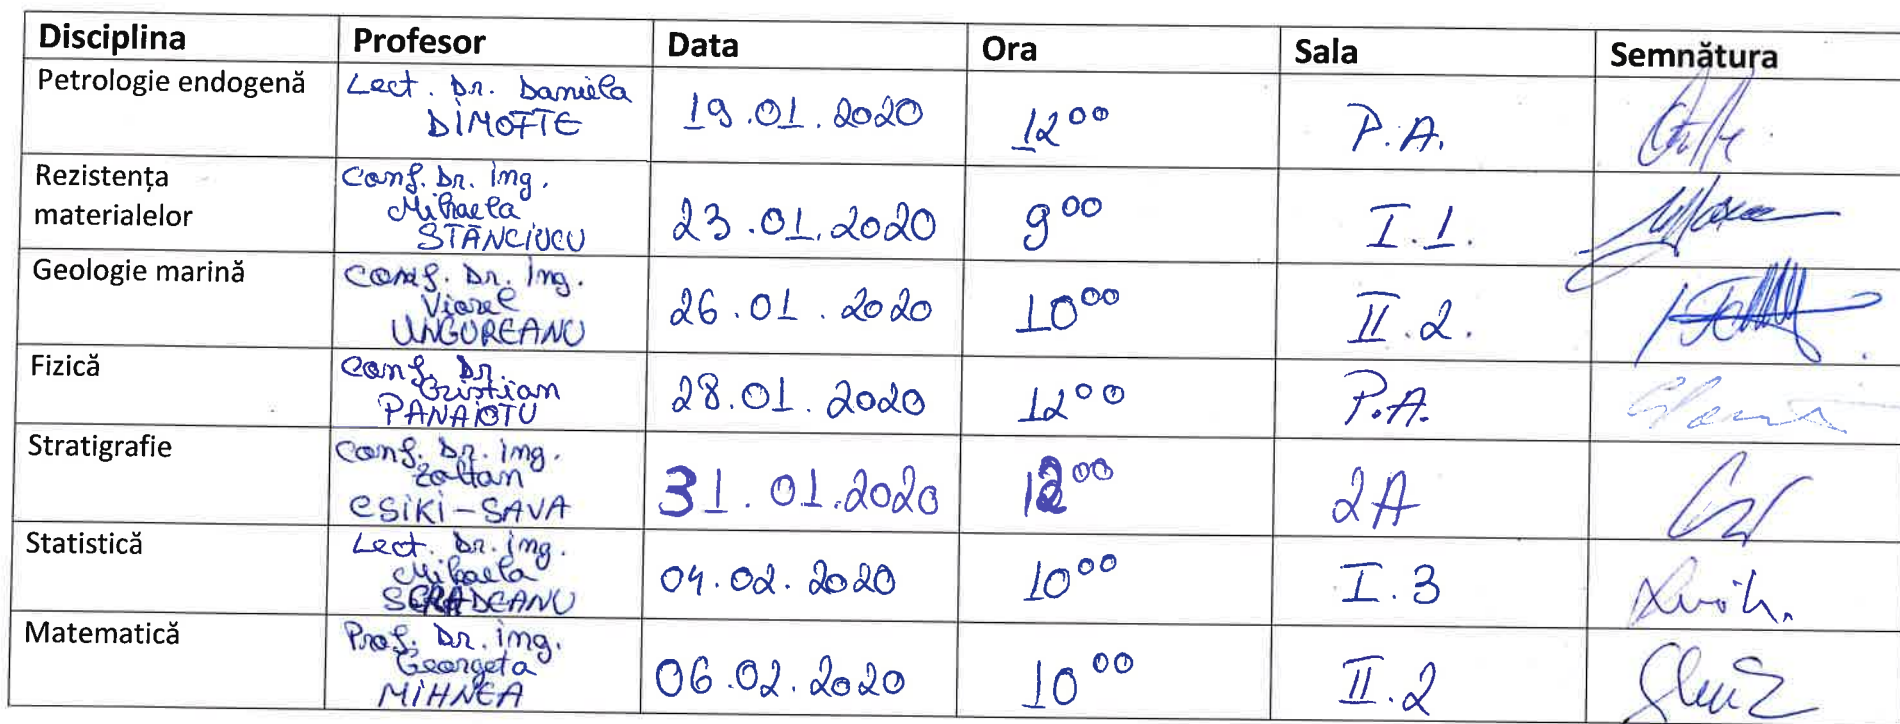 Disciplina Profesor Data Ora Sala Semnătura
Petrologie endogenă Lect. Dr. Daniela
DIMOFTE 19.01.2020 12⁰⁰ P.A.
Rezistența Conf. Dr. ing.
materialelor Mihaela
STĂNCIUCU 23.01.2020 9⁰⁰ I.1.
Geologie marină Conf. Dr. ing.
Viorel
UNGUREANU 26.01.2020 10⁰⁰ II.2.
Fizică Conf. Dr.
Cristian
PANAIOTU 28.01.2020 12⁰⁰ P.A.
Stratigrafie Conf. Dr. ing.
Zoltan
CSIKI-SAVA 31.01.2020 12⁰⁰ 2A
Statistică Lect. Dr. ing.
Mihaela
SCRĂDEANU 04.02.2020 10⁰⁰ I.3
Matematică Prof. Dr. ing.
Georgeta
MIHNEA 06.02.2020 10⁰⁰ II.2